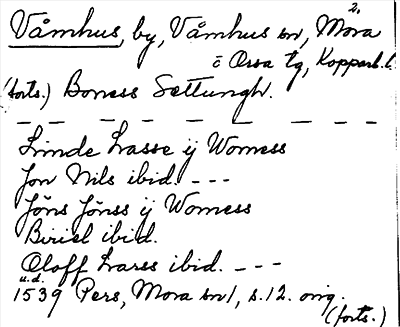 2.
Våmhus, by, Våmhus sn, Mora
o Orsa tg, Kopparb. l.
(forts.) Boness Settungh.
Linde Lasse ij Womess
Jon Nils ibid. ---
Jöns Jönss ij Womess
Biriel ibid.
Oloff Larss ibid. ---
u.d.
1539 Pers, Mora sn 1, s. 12. orig.
(forts.)